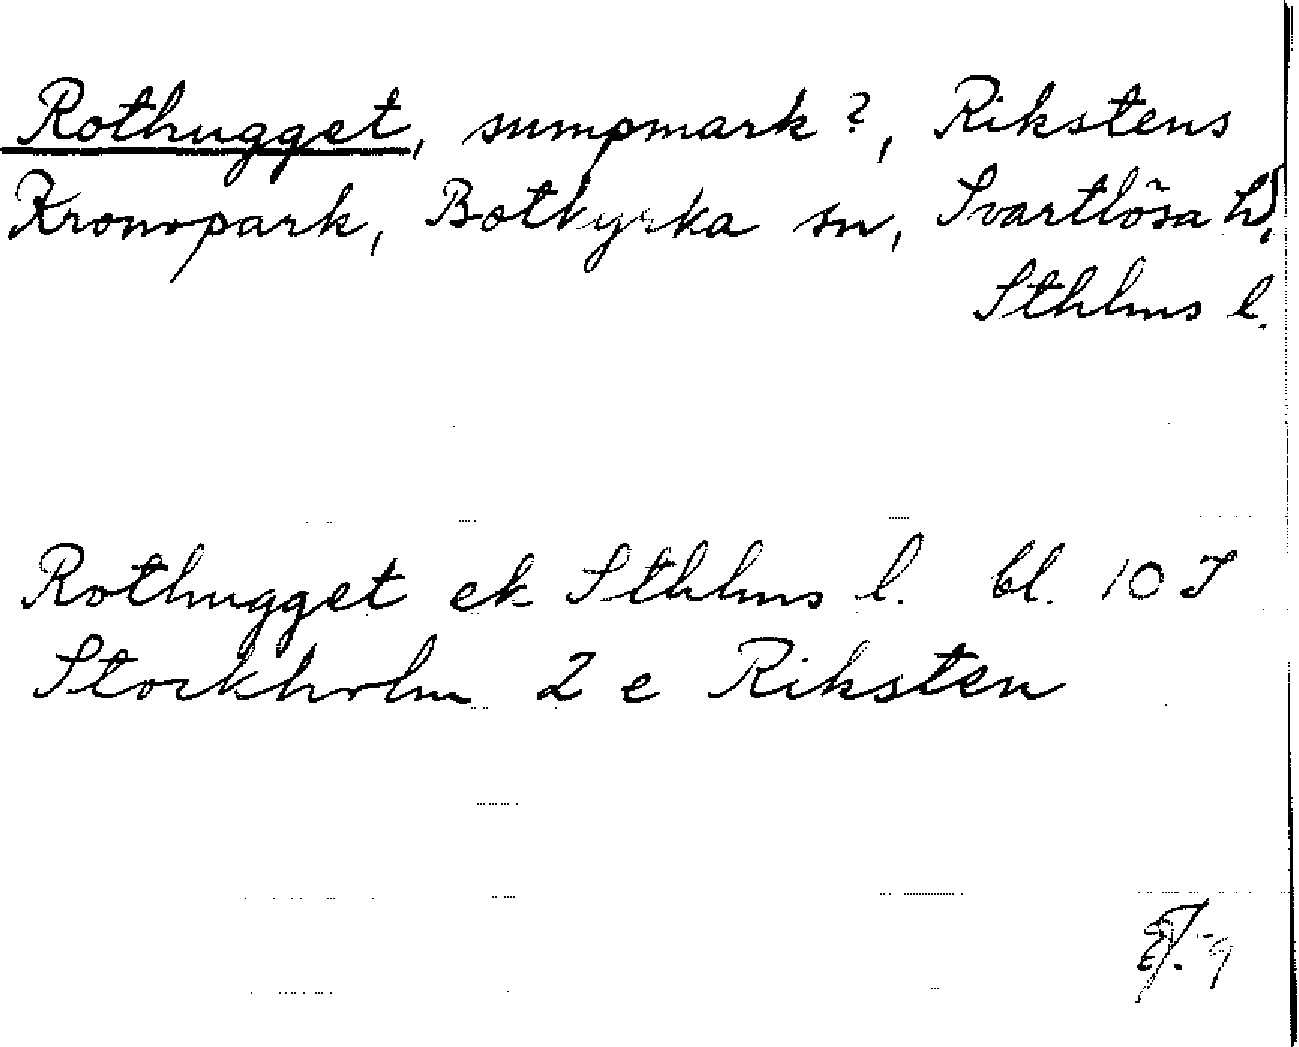 Rothugget, sumpmark?, Rikstens
Kronopark, Botkyrka sn, Svartlösa hd,
Sthlms l.
Rothugget ek Sthlms l. bl. 10 I
Stockholm 2 e Riksten